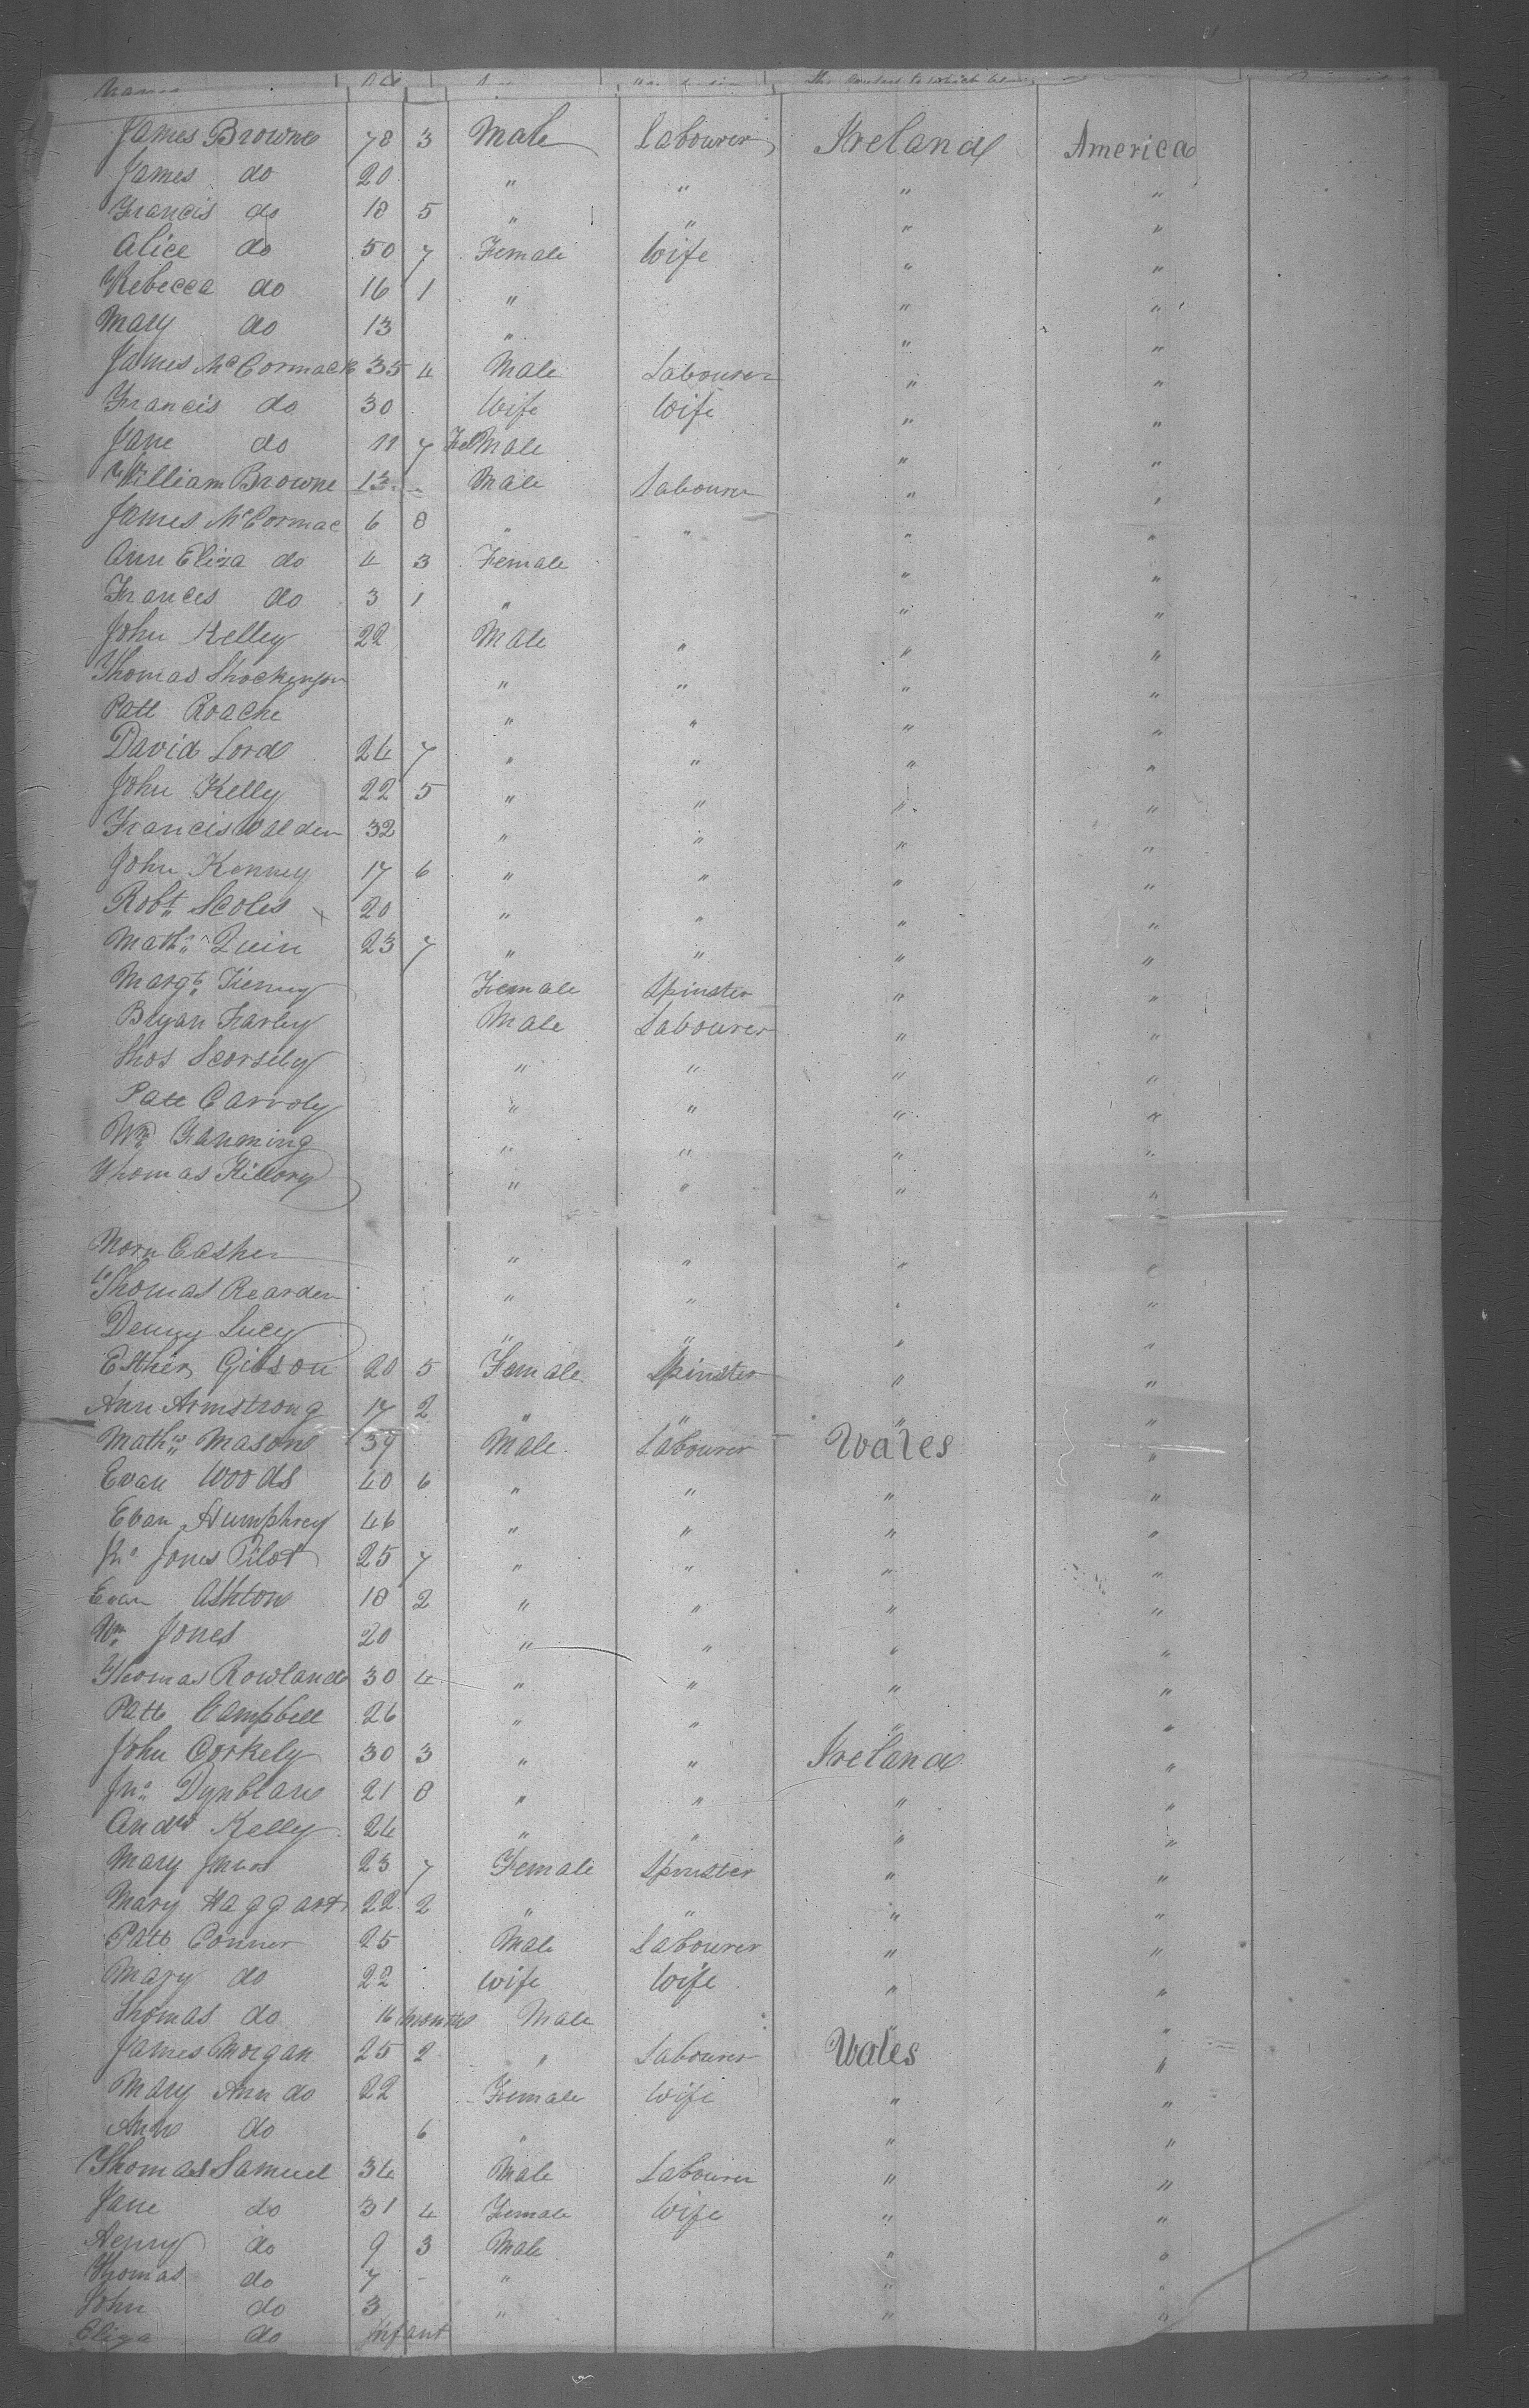 Names Age The Country to which belong
James Browne 78 3 Male Labourer Ireland America
James do 20 " " " "
Francis do 18 5 " " " "
Alice do 50 7 Female Wife " "
Rebecca do 16 1 " " "
Mary do 13 " " "
James McCormack 35 4 Male Labourer " "
Francis do 30 Wife Wife " "
Jane do 11 7 FeMale " "
William Browne 13 - Male Labourer " "
James McCormac 6 8 " " " "
Ann Eliza do 4 3 Female " "
Frances do 3 1 " " "
John Kelley 22 Male " " "
Thomas " " " "
Patt Roache " " " "
David Lord 24 7 " " " "
John Kelly 22 5 " " " "
Francis Walden 32 " " " "
John Kenney 17 6 " " " "
Robt Scoles x 20 " " " "
Mathw Quin 23 7 " " " "
Margt Female Spinster " "
Bryan Farley Male Labourer " "
Thos " " " "
Patt " " " "
Wm " " " "
Thomas Killory " " " "
" " " "
Thomas Rearden " " " "
Denny Lucey " " " "
Esther Gibson 20 5 Female Spinster " "
Ann Armstrong 17 2 " " " "
Mathw Mason 39 Male Labourer Wales "
Evan Woods 40 6 " " " "
Evan Humphrey 46 " " " "
Jno Jones Pilot 25 7 " " " "
Evan Ashton 18 2 " " " "
Wm Jones 20 " " " "
Thomas Rowland 30 4 " " " "
Patt Campbell 26 " " " "
John Corkely 30 3 " " Ireland "
Jno 21 8 " " " "
Andw Kelly 24 " " " "
Mary 23 7 Female Spinster " "
Mary Haggart 22 2 " " " "
Patt Conner 25 Male Labourer " "
Mary do 22 Wife Wife " "
Thomas do 16 months Male " "
James Morgan 25 2 " Labourer Wales "
Mary Ann do 22 Female Wife " "
Ann do 6 " " "
Thomas Samuel 34 Male Labourer " "
Jane do 31 4 Female Wife " "
Henry do 9 3 Male " "
Thomas do 7 - " " "
John do 3 " " "
Eliza do Infant